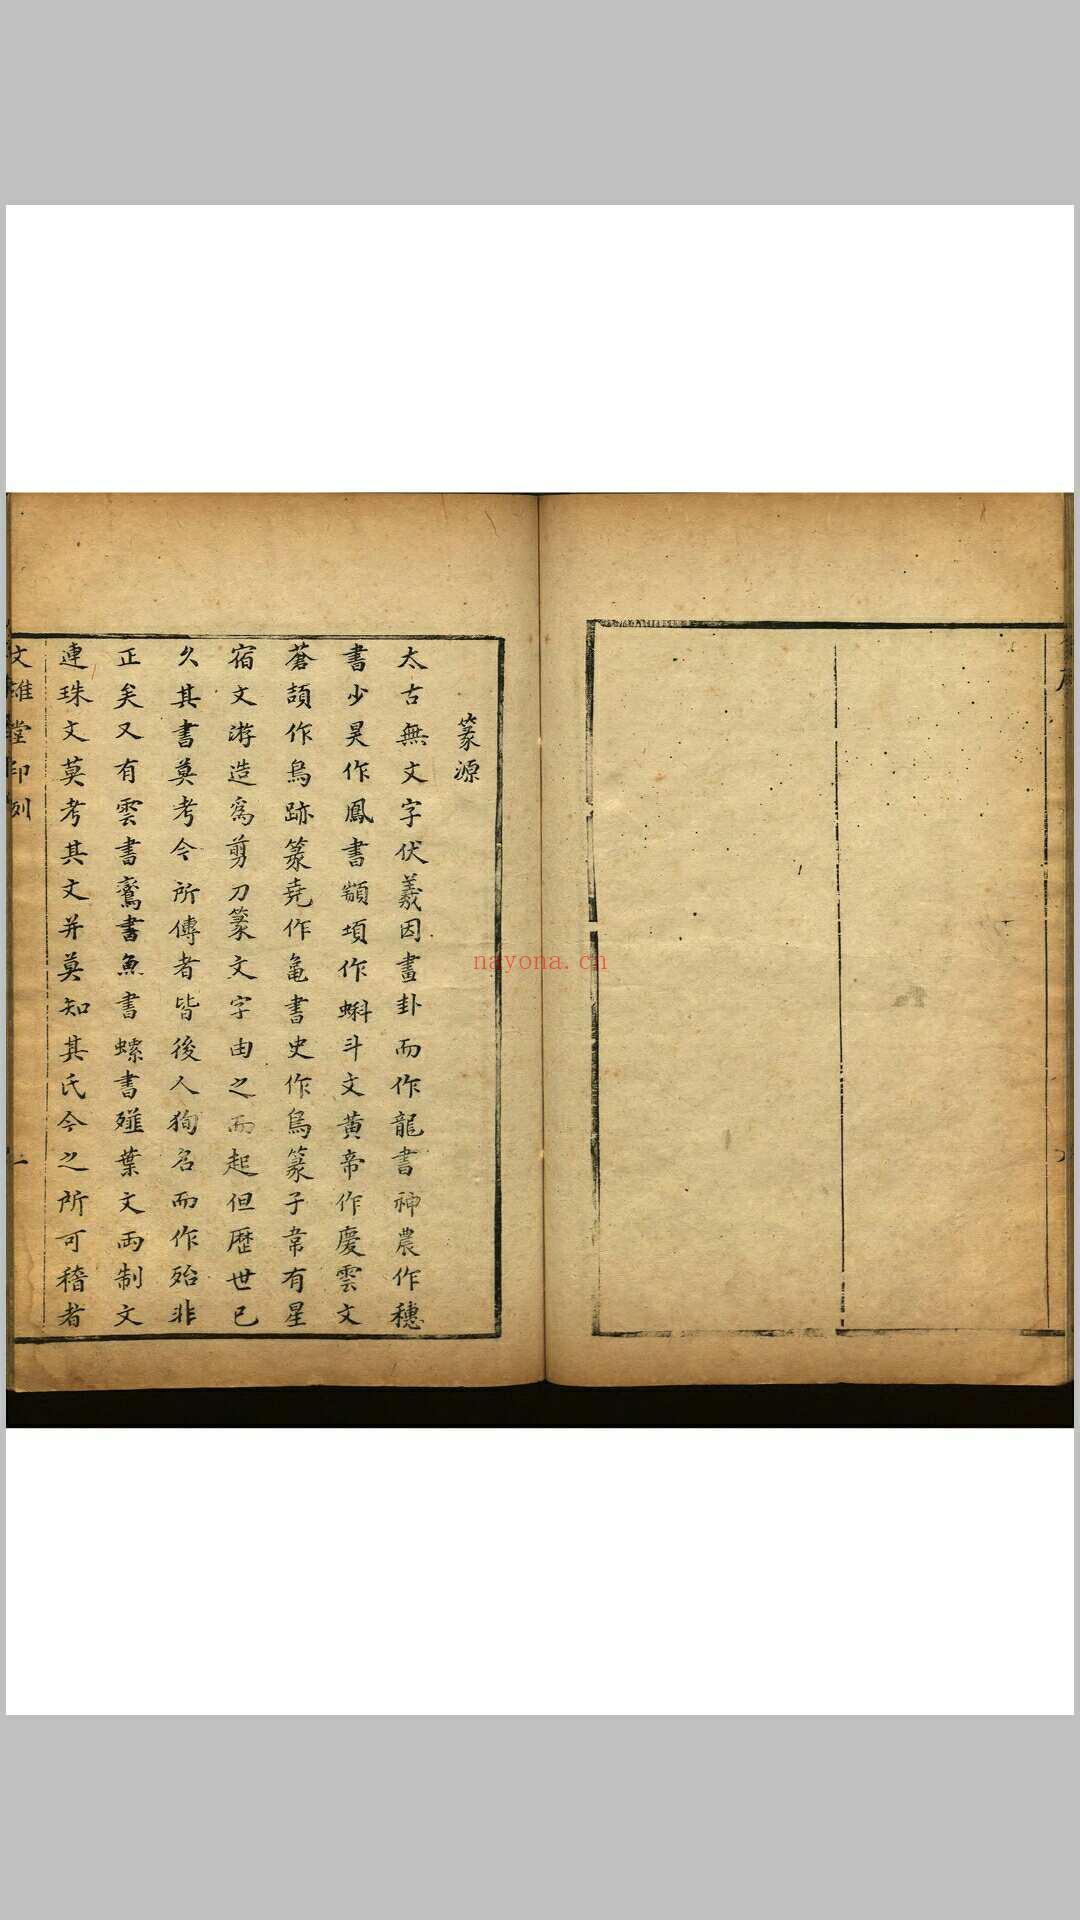 篆源
太古無文字伏羲因畫卦而作龍書神農作穗
書少昊作鳳書顓頊作蝌斗文黄帝作慶雲文
蒼頡作鳥跡篆堯作龜書史作鳥篆子韋有星
宿文游造為剪刀篆文字由之而起但歷世已
久其書莫考今所傳者皆後人狥名而作殆非
正矣又有雲書鸞書魚書螺書薤葉文兩制文
連珠文莫考其文并莫知其氏今之所可稽者
文雄堂印刻
一
nayona.cn